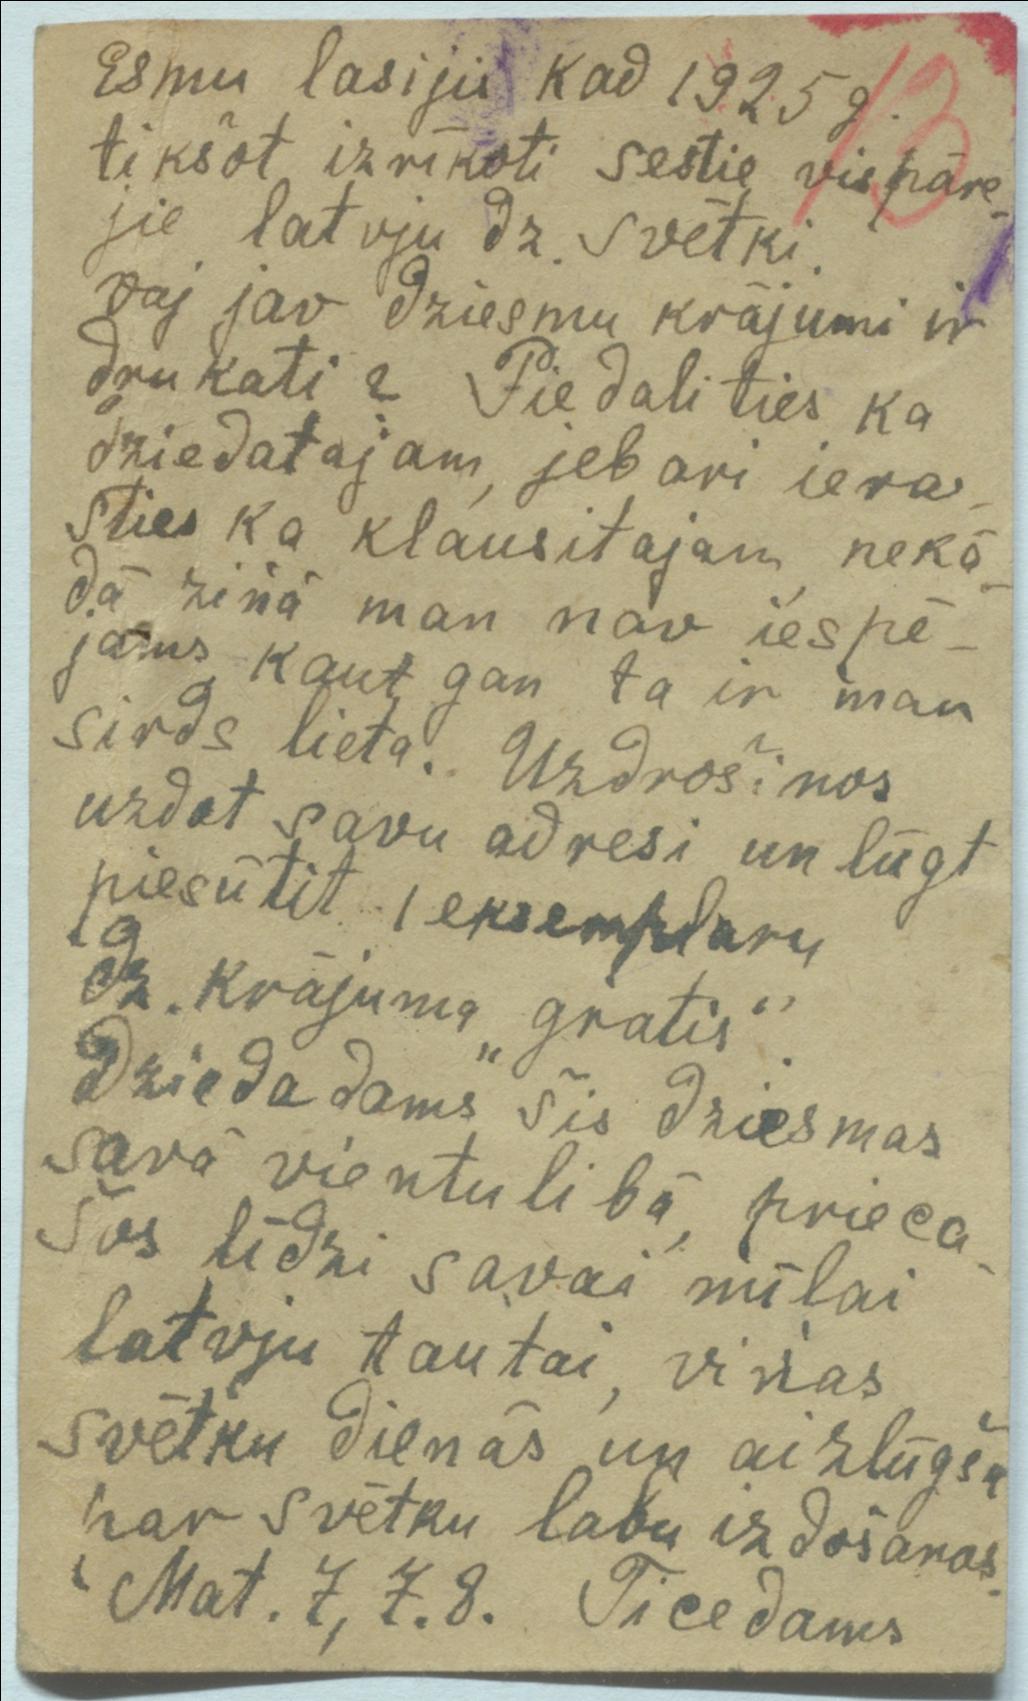 Esmu lasijis kad 1925 g.
tikšot izrīkoti sestie vispāre-
jie latvju dz. svētki.
vaj jav dziesmu krājumi ir
drukati? Piedalities ka
dziedatajam, jeb ari iera-
sties ka klausitajam, nekā-
dā ziņā man nav iespē-
jams, kaut gan ta ir man
sirds lieta. Uzdrošinos
uzdot savu adresi un lūgt
piesūtit 1 eksemplaru
dz. krājuma „gratis“.
Dziedadams šis dziesmas
savā vientulibā, priecā-
šos līdzi savai mīlai
latvju tautai, viņas
svētku dienās un aizlūgšu
par svētku labu izdošanos.
Mat. 7, 7.8. Ticedams
13